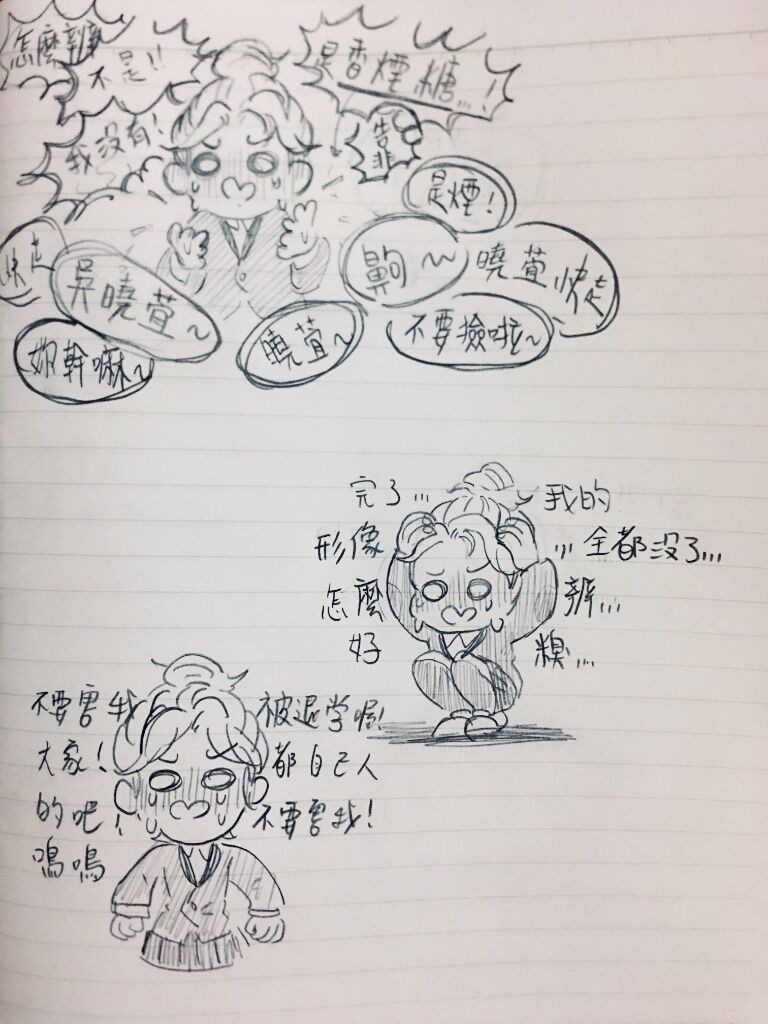 怎麼辦
不是!!
我沒有!
是香煙糖...!
是煙!
快走
吳曉萱~
妳幹嘛~
曉萱~
曉萱快走
不要撿啦~
完了... 我的
形像... 全都沒了...
怎麼辦...
好糗...
不要害我被退学喔!
大家! 都自己人
的吧! 不要害我!
嗚嗚